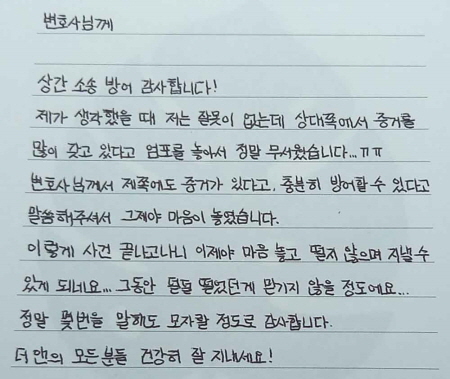 변호사님께
상간 소송 방어 감사합니다!
제가 생각했을 때 저는 잘못이 없는데 상대쪽에서 증거를
많이 갖고 있다고 엄포를 놓아서 정말 무서웠습니다...ㅠㅠ
변호사님께서 제쪽에도 증거가 있다고, 충분히 방어할 수 있다고
말씀해주셔서 그제야 마음이 놓였습니다.
이렇게 사건 끝나고나니 이제야 마음 놓고 떨지 않으며 지낼 수
있게 되네요... 그동안 덜덜 떨었던게 믿기지 않을 정도에요...
정말 몇번을 말해도 모자랄 정도로 감사합니다.
더앤의 모든분들 건강히 잘 지내세요!